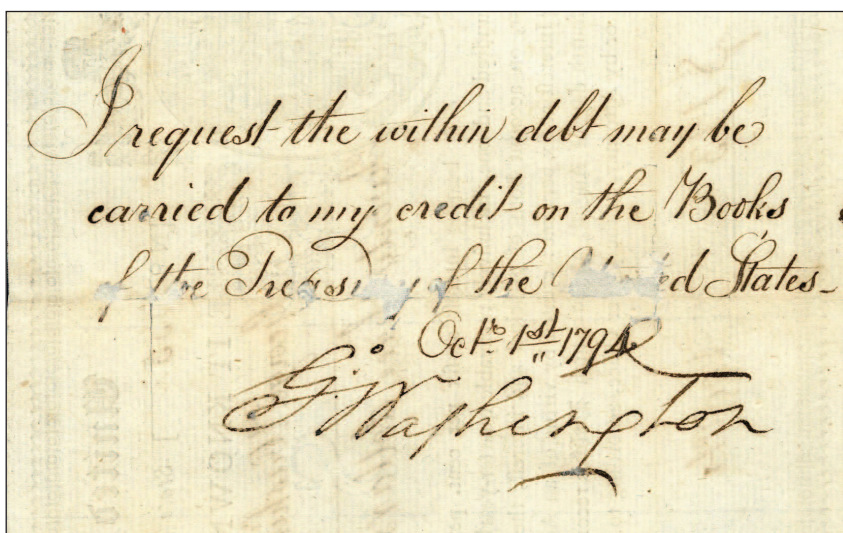 I request the within debt may be
carried to my credit on the Books
of the Treasury of the United States_
Octo. 1st 1794
G: Washington